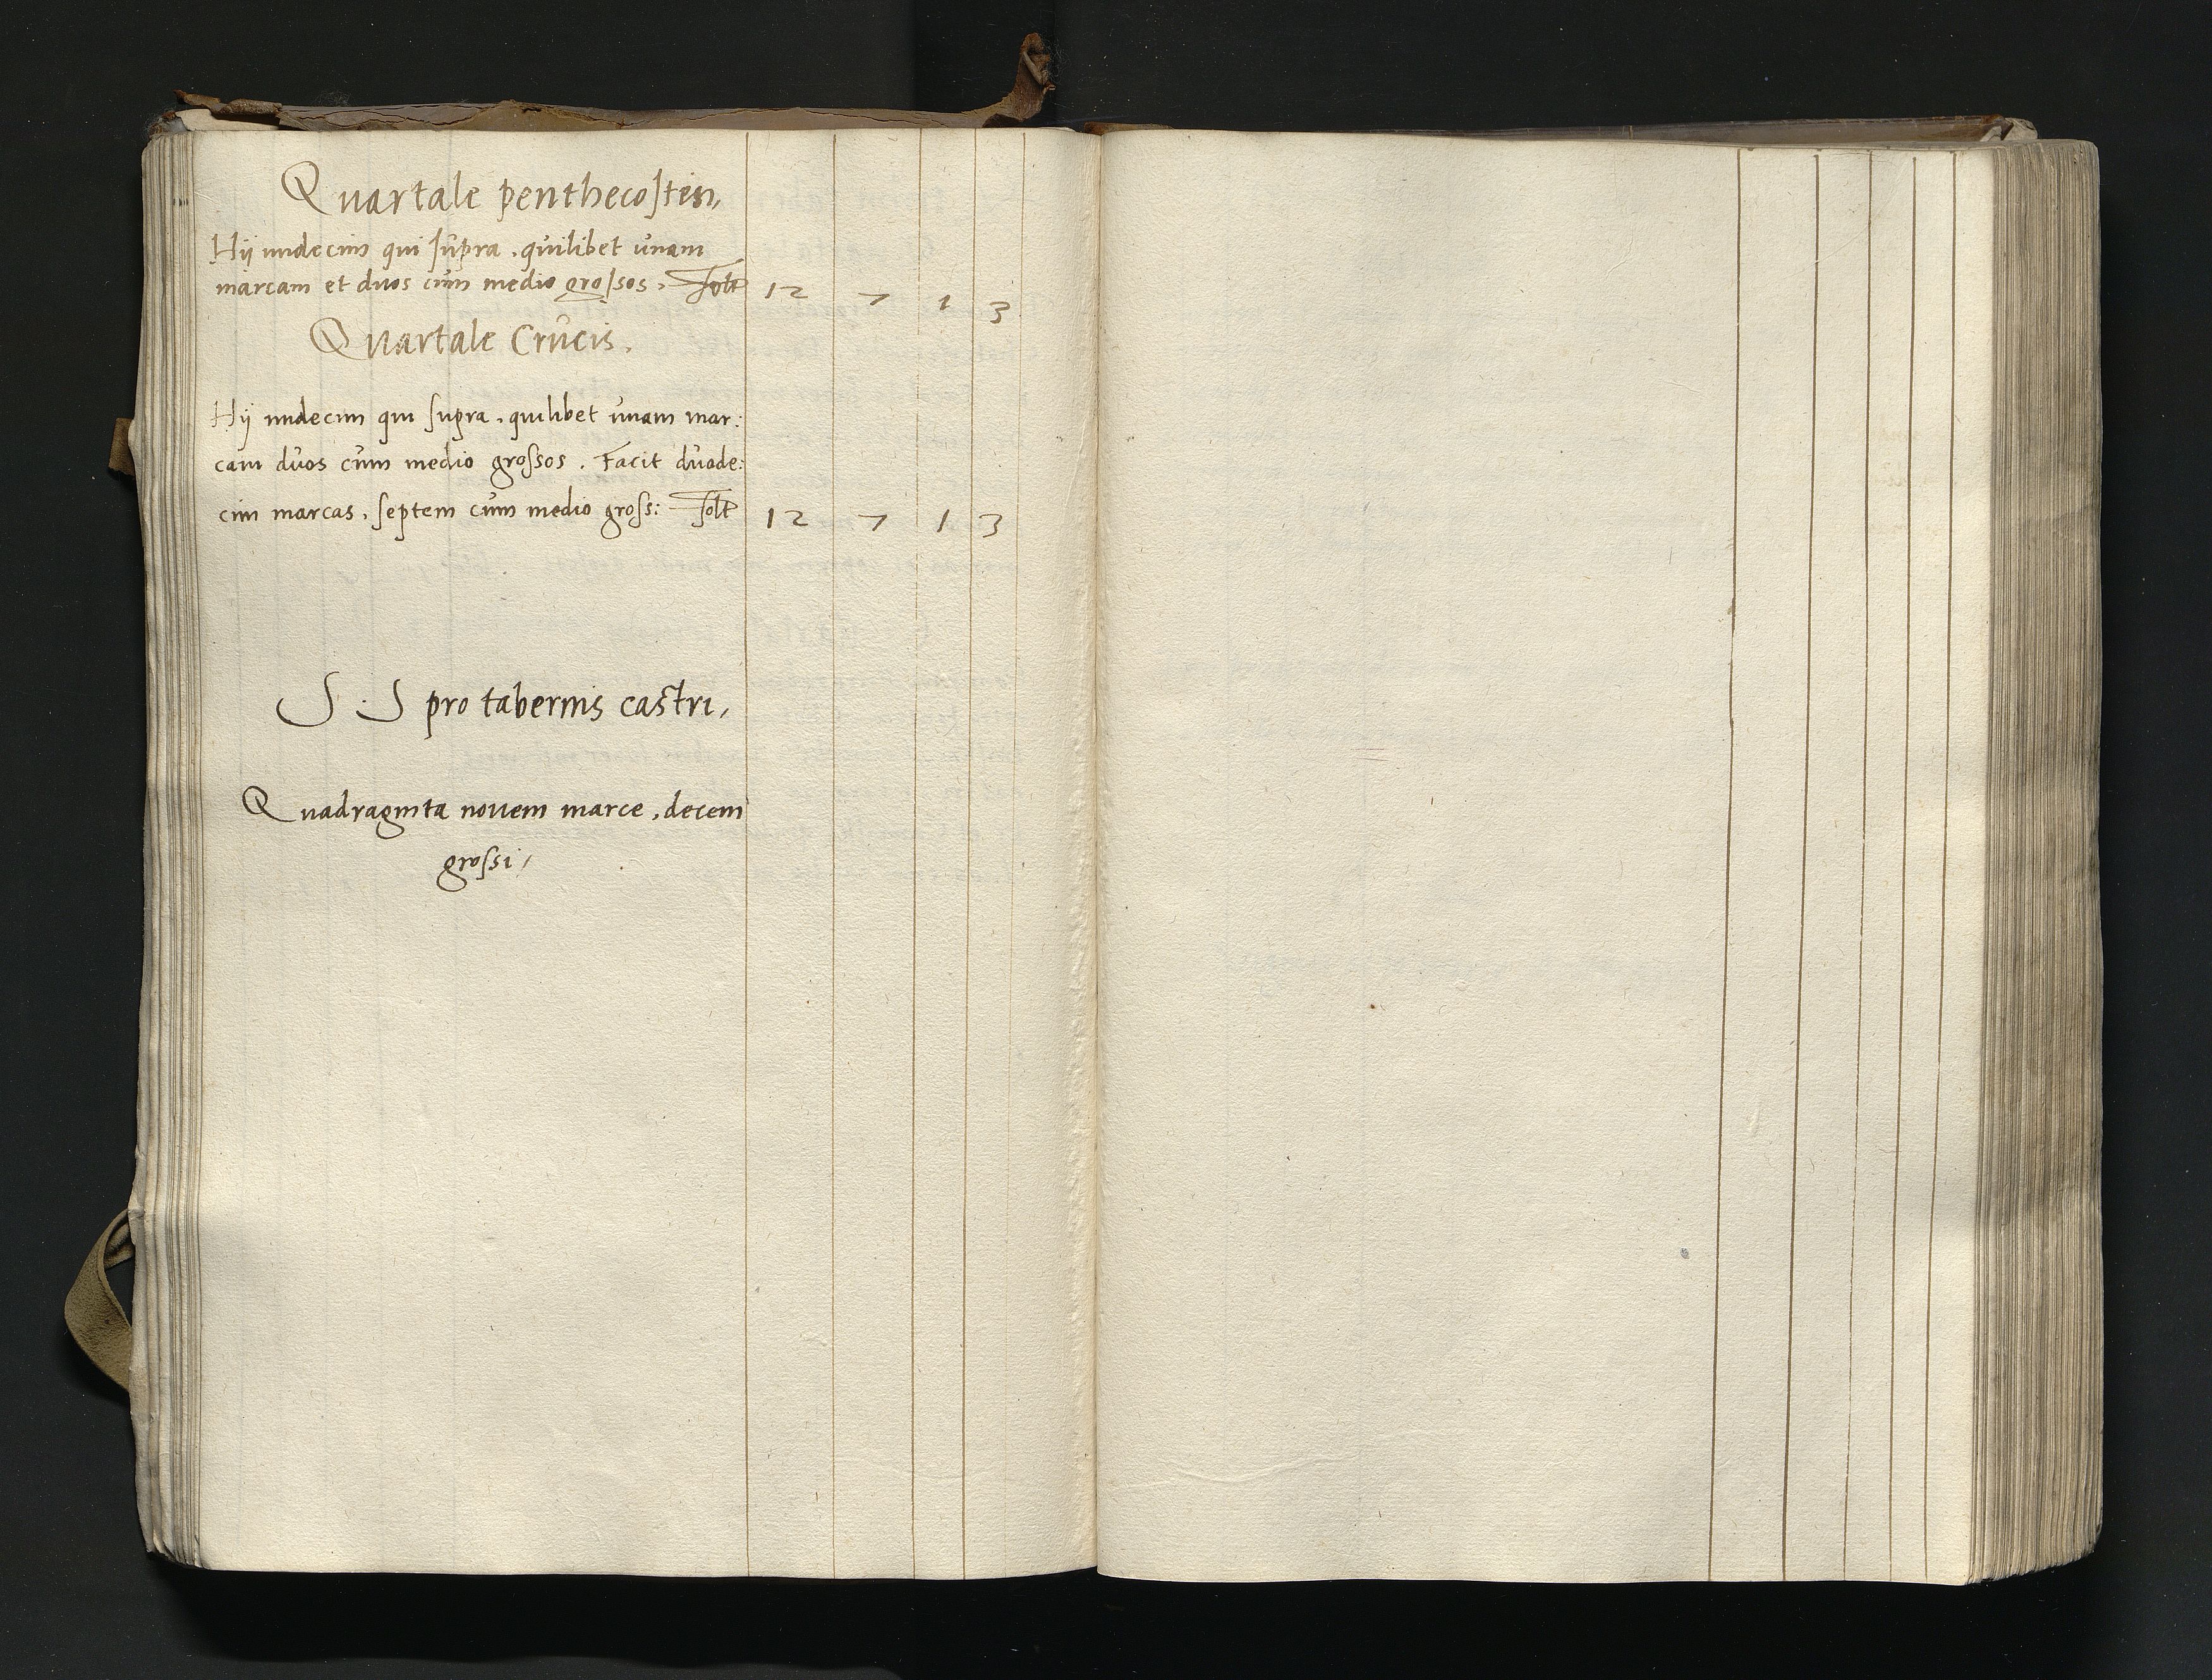 Quartale penthecosten,
Hij undecim qui supra, quilibet vnam
marcam et duos cum medio grossos, Solt 12 7 1 3
Quartale Crucis.
Hij undecim qui supra, quilibet vnam mar:
cam duos cum medio grossos. Facit duode:
cim marcas, septem cum medio gross: Solt 12 7 1 3
S . S pro tabernis castri,
Quadraginta nouem marce, decem
grossi,